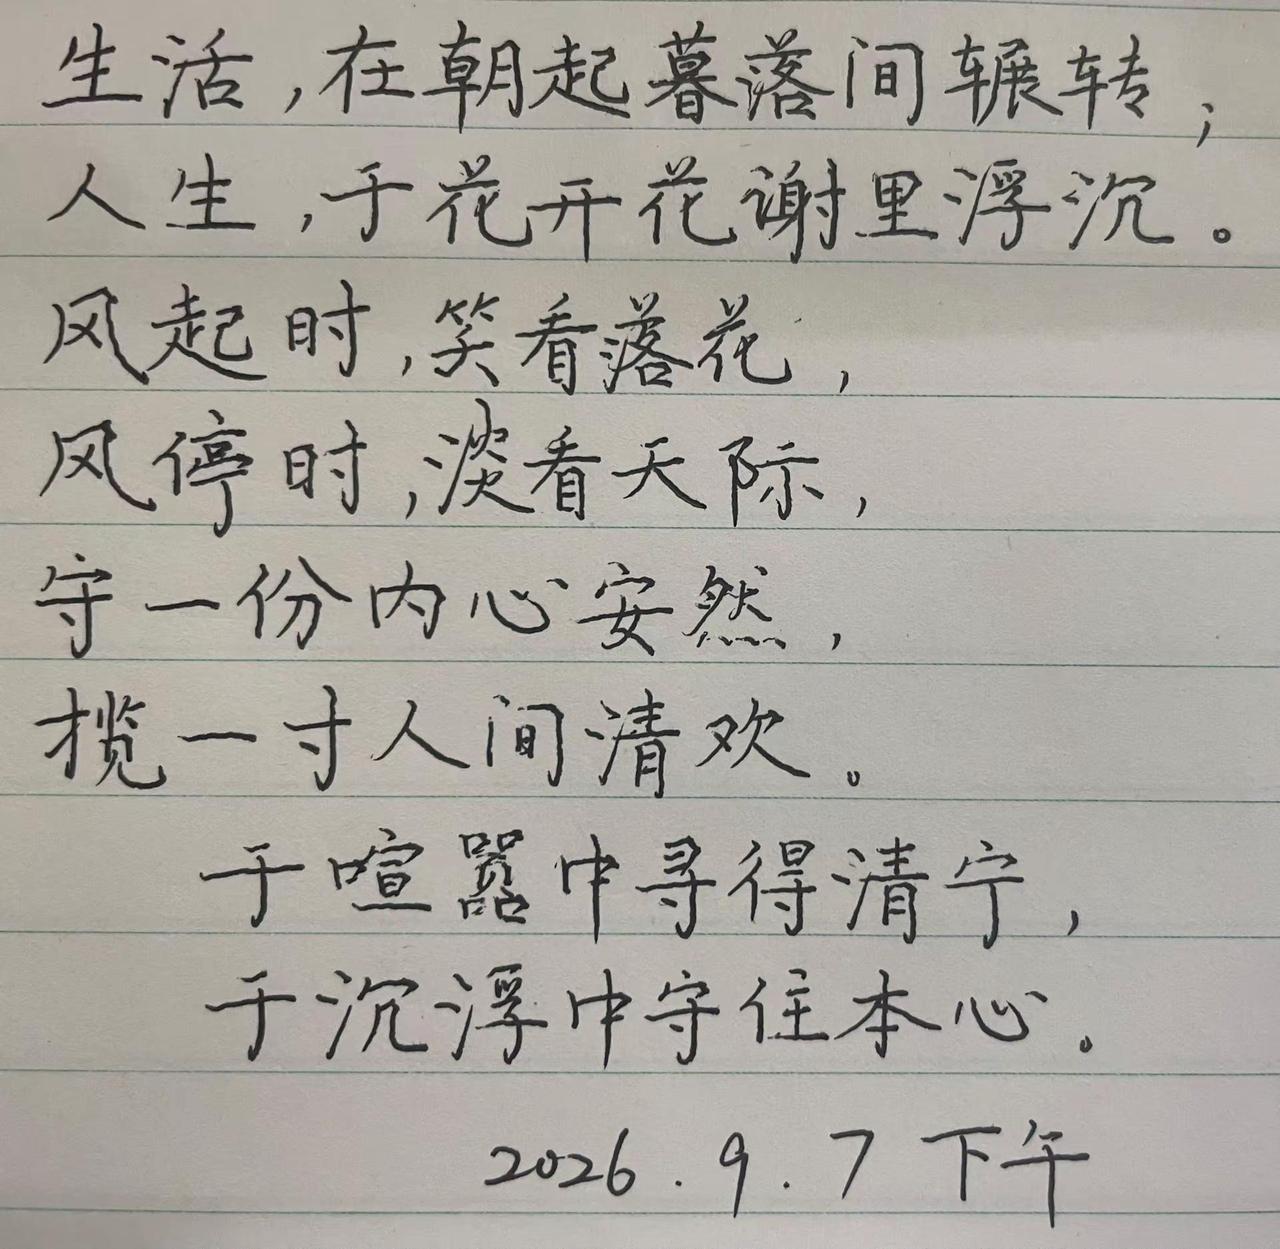 生活,在朝起暮落间辗转;
人生,于花开花谢里浮沉。
风起时,笑看落花,
风停时,淡看天际,
守一份内心安然,
揽一寸人间清欢。
于喧嚣中寻得清宁,
于沉浮中守住本心。
2026.9.7 下午